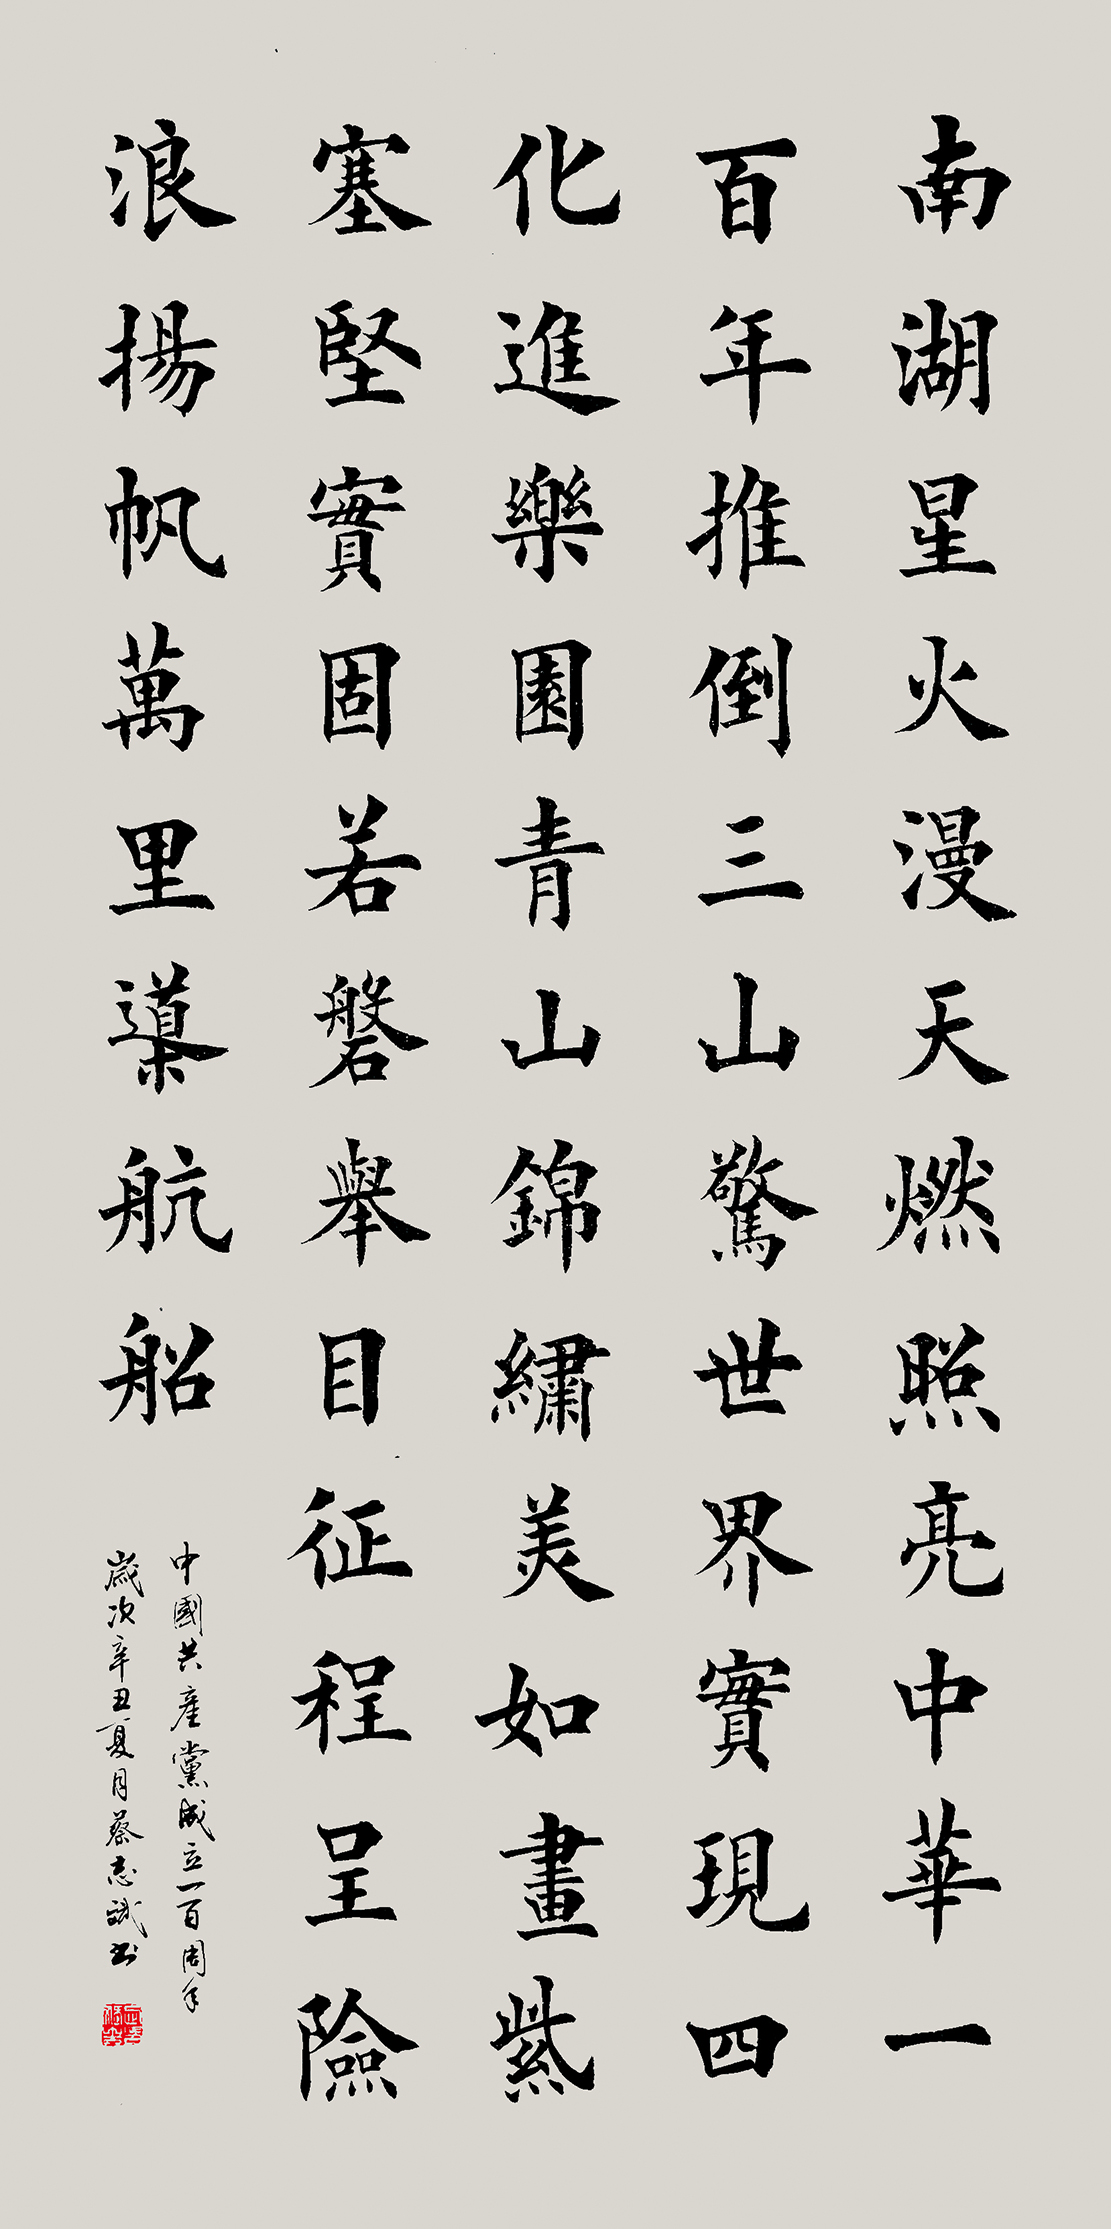 南湖星火漫天燃照亮中華一
百年推倒三山驚世界實現四
化進樂園青山錦繡美如畫紫
塞堅實固若磐舉目征程呈險
浪揚帆萬里導航船
中國共產黨成立一百周年
歲次辛丑夏月蔡志誠書